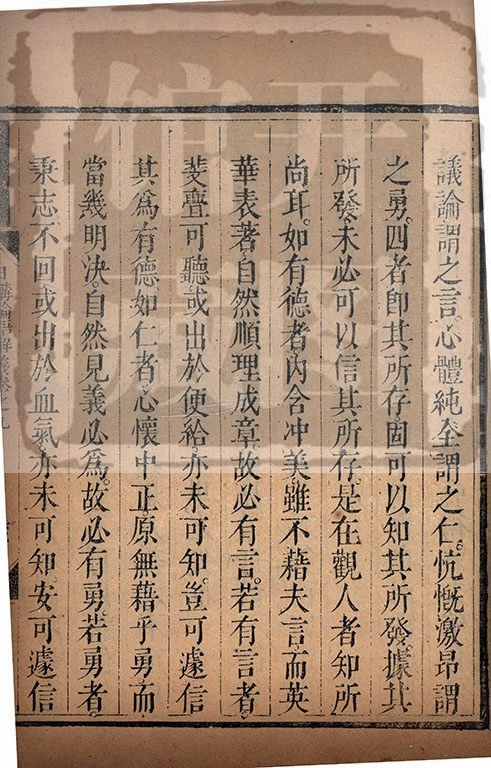 議論謂之言。心體純全謂之仁。忼慨激昂謂
之勇。四者卽其所存固可以知其所發。據其
所發。未必可以信其所存。是在觀人者知所
尚耳。如有德者。內含冲美。雖不藉夫言而英
華表著。自然順理成章。故必有言。若有言者。
斐亹可聽或出於便給亦未可知。豈可遽信
其爲有德。如仁者心懷中正。原無藉乎勇而
當幾明決。自然見義必爲。故必有勇若勇者。
秉志不回或出於血氣。亦未可知。安可遽信
日講四書解義卷之九